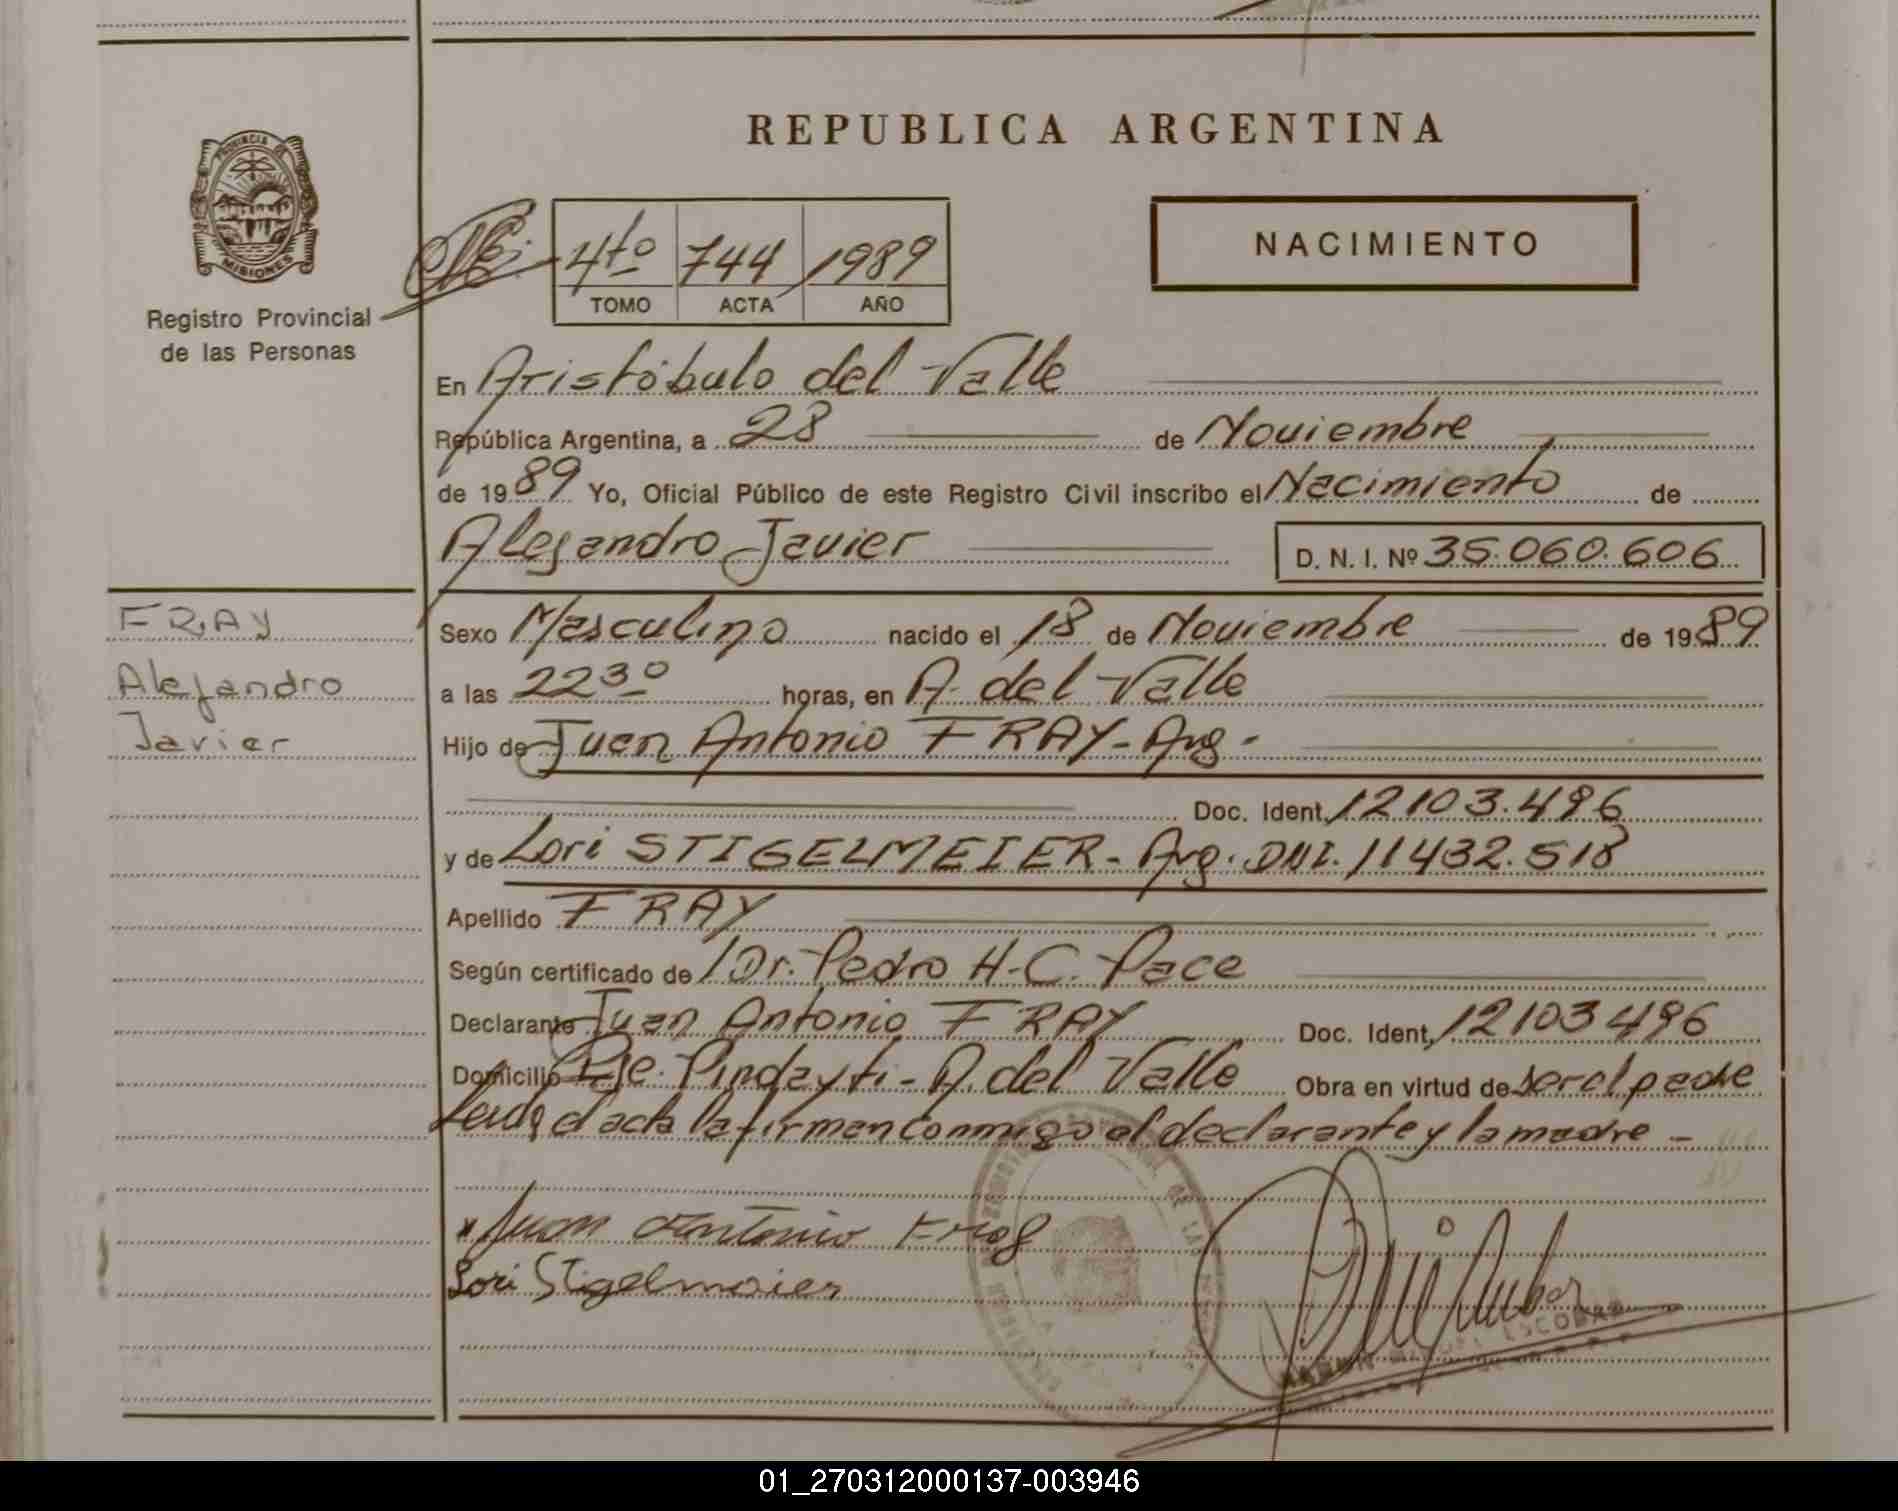 REPUBLICA ARGENTINA
PROVINCIA DE
MISIONES
Registro Provincial
de las Personas
4to 744 1989
TOMO ACTA AÑO
NACIMIENTO
En Aristóbulo del Valle
República Argentina, a 28 de Noviembre
de 1989 Yo, Oficial Público de este Registro Civil inscribo el Nacimiento de
Alejandro Javier D. N. I. Nº 35.060.606
FRAY
Alejandro
Javier
Sexo Masculino nacido el 18 de Noviembre de 1989
a las 22 30 horas, en A. del Valle
Hijo de Juan Antonio FRAY - Arg -
Doc. Ident. 12103.496
y de Lori STIGELMEIER - Arg. DNI. 11432.518
Apellido FRAY
Según certificado de Dr. Pedro H. C. Pace
Declarante Juan Antonio FRAY Doc. Ident. 12103496
Domicilio Pje. Pindayti - A. del Valle Obra en virtud de ser el padre
Leida el acta la firman conmigo el declarante y la madre -
Juan Antonio Fray
Lori Stigelmaier
ESCOBAR
01_270312000137-003946